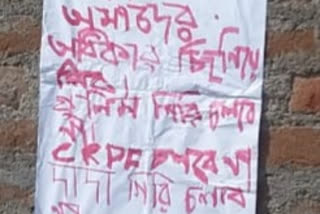 অমাদের
অধিকার ছিনিয়ে
নিবে
পুলিশ গিরি চলবে
না
CRPF চলবে না
দাদা গিরি চলবে